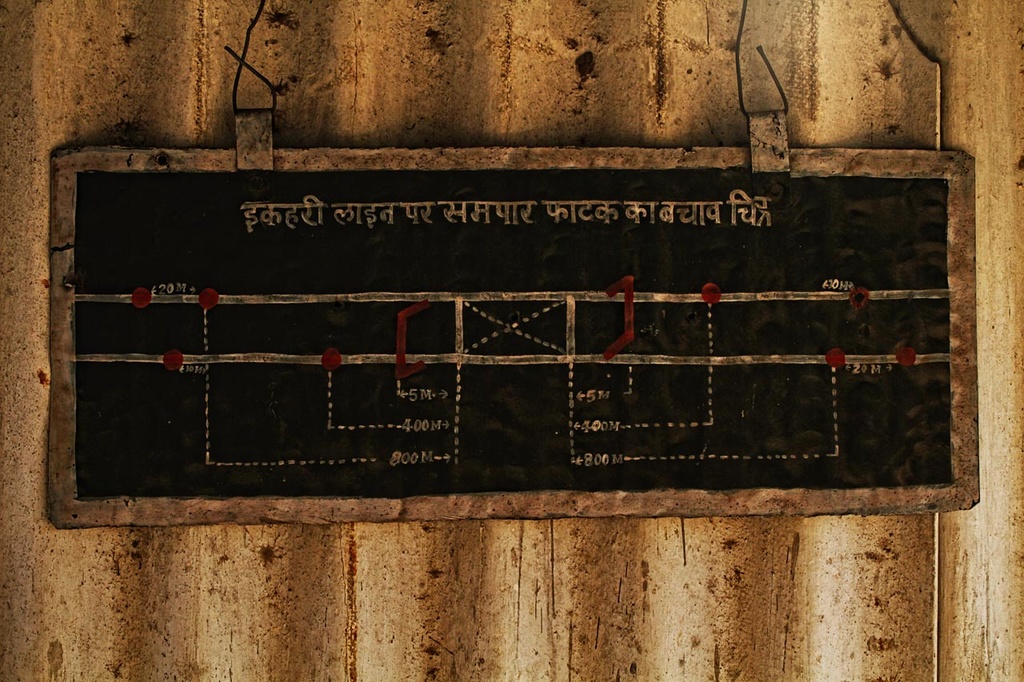 इकहरी लाइन पर समपार फाटक का बचाव चित्र
20M 10M
10M 20M
5M 5M
400M 400M
800M 800M